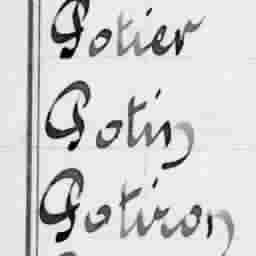 Potier
Potin
Potiron